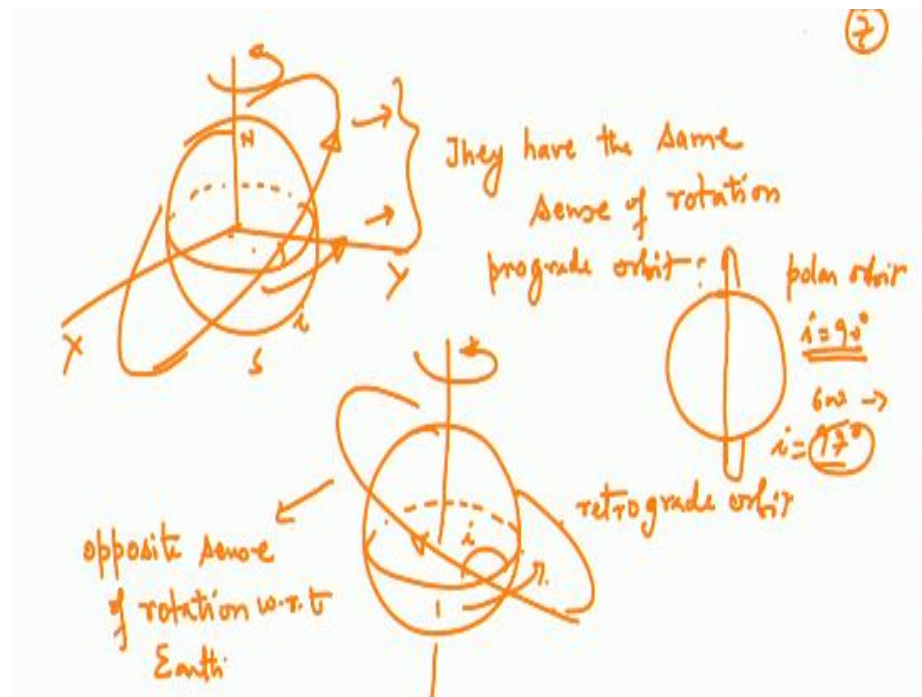 7
N
They have the same
sense of rotation
prograde orbit:
X
Y
i
S
polar orbit
i = 90°
i = 97°
retrograde orbit
i
opposite sense
of rotation w.r.t
Earth